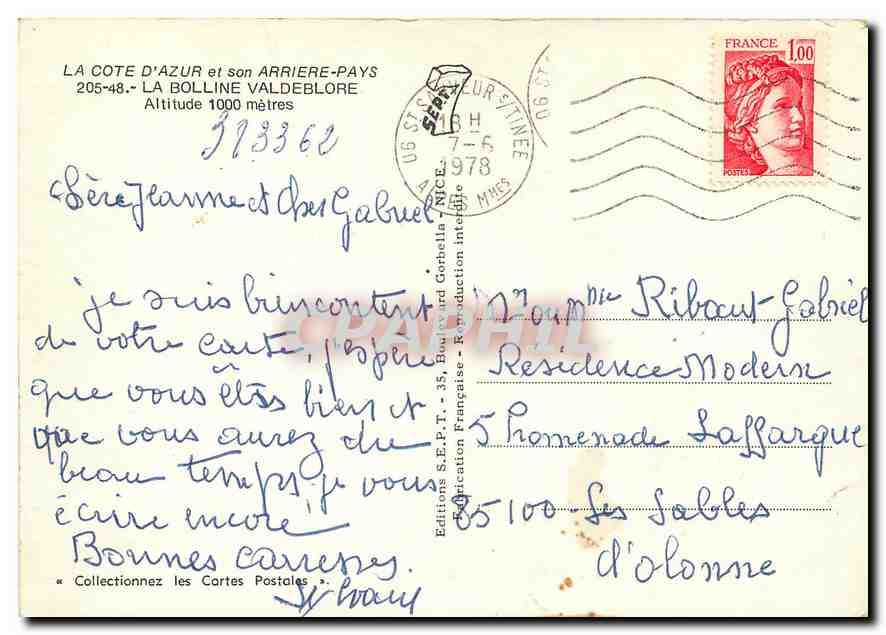 LA COTE D'AZUR et son ARRIERE-PAYS
205-48.- LA BOLLINE VALDEBLORE
Altitude 1000 mètres
313362
Jeanne et Cher Gabriel
je suis bien content
de votre carte, j'espère
que vous êtes bien et
que vous aurez du
beau temps je vous
écrire encore
Bonnes caresses.
« Collectionnez les Cartes Postales ».
Sylvain
SEPT
06 ST SAUVEUR S/TINEE
18 H
7-6
1978
ALPES MMES
06 ST-
FRANCE 1,00
POSTES
Editions S.E.P.T. - 35, Boulevard Gorbella - NICE.
Fabrication Française - Reproduction interdite
CPAPHIL
Ribaut Gabriel
Residence Modern
5 Promenade Laffargue
85100 - Les Sables
d'olonne